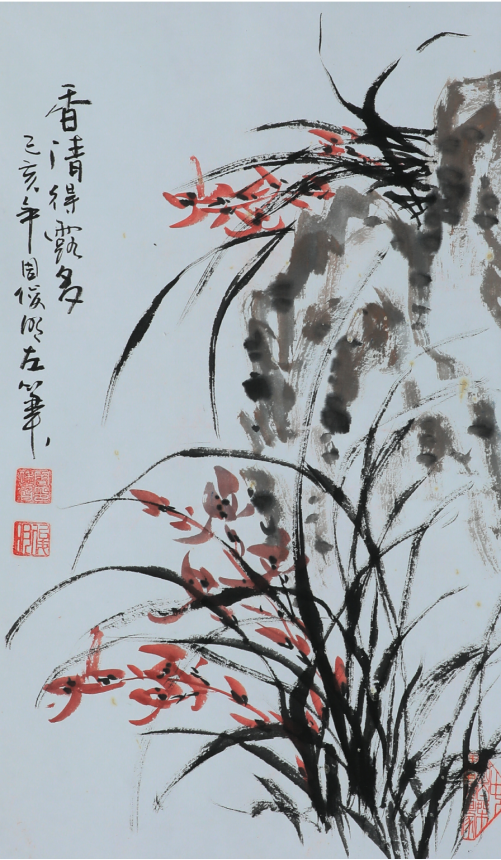 香清得露多
己亥年周俊明左筆